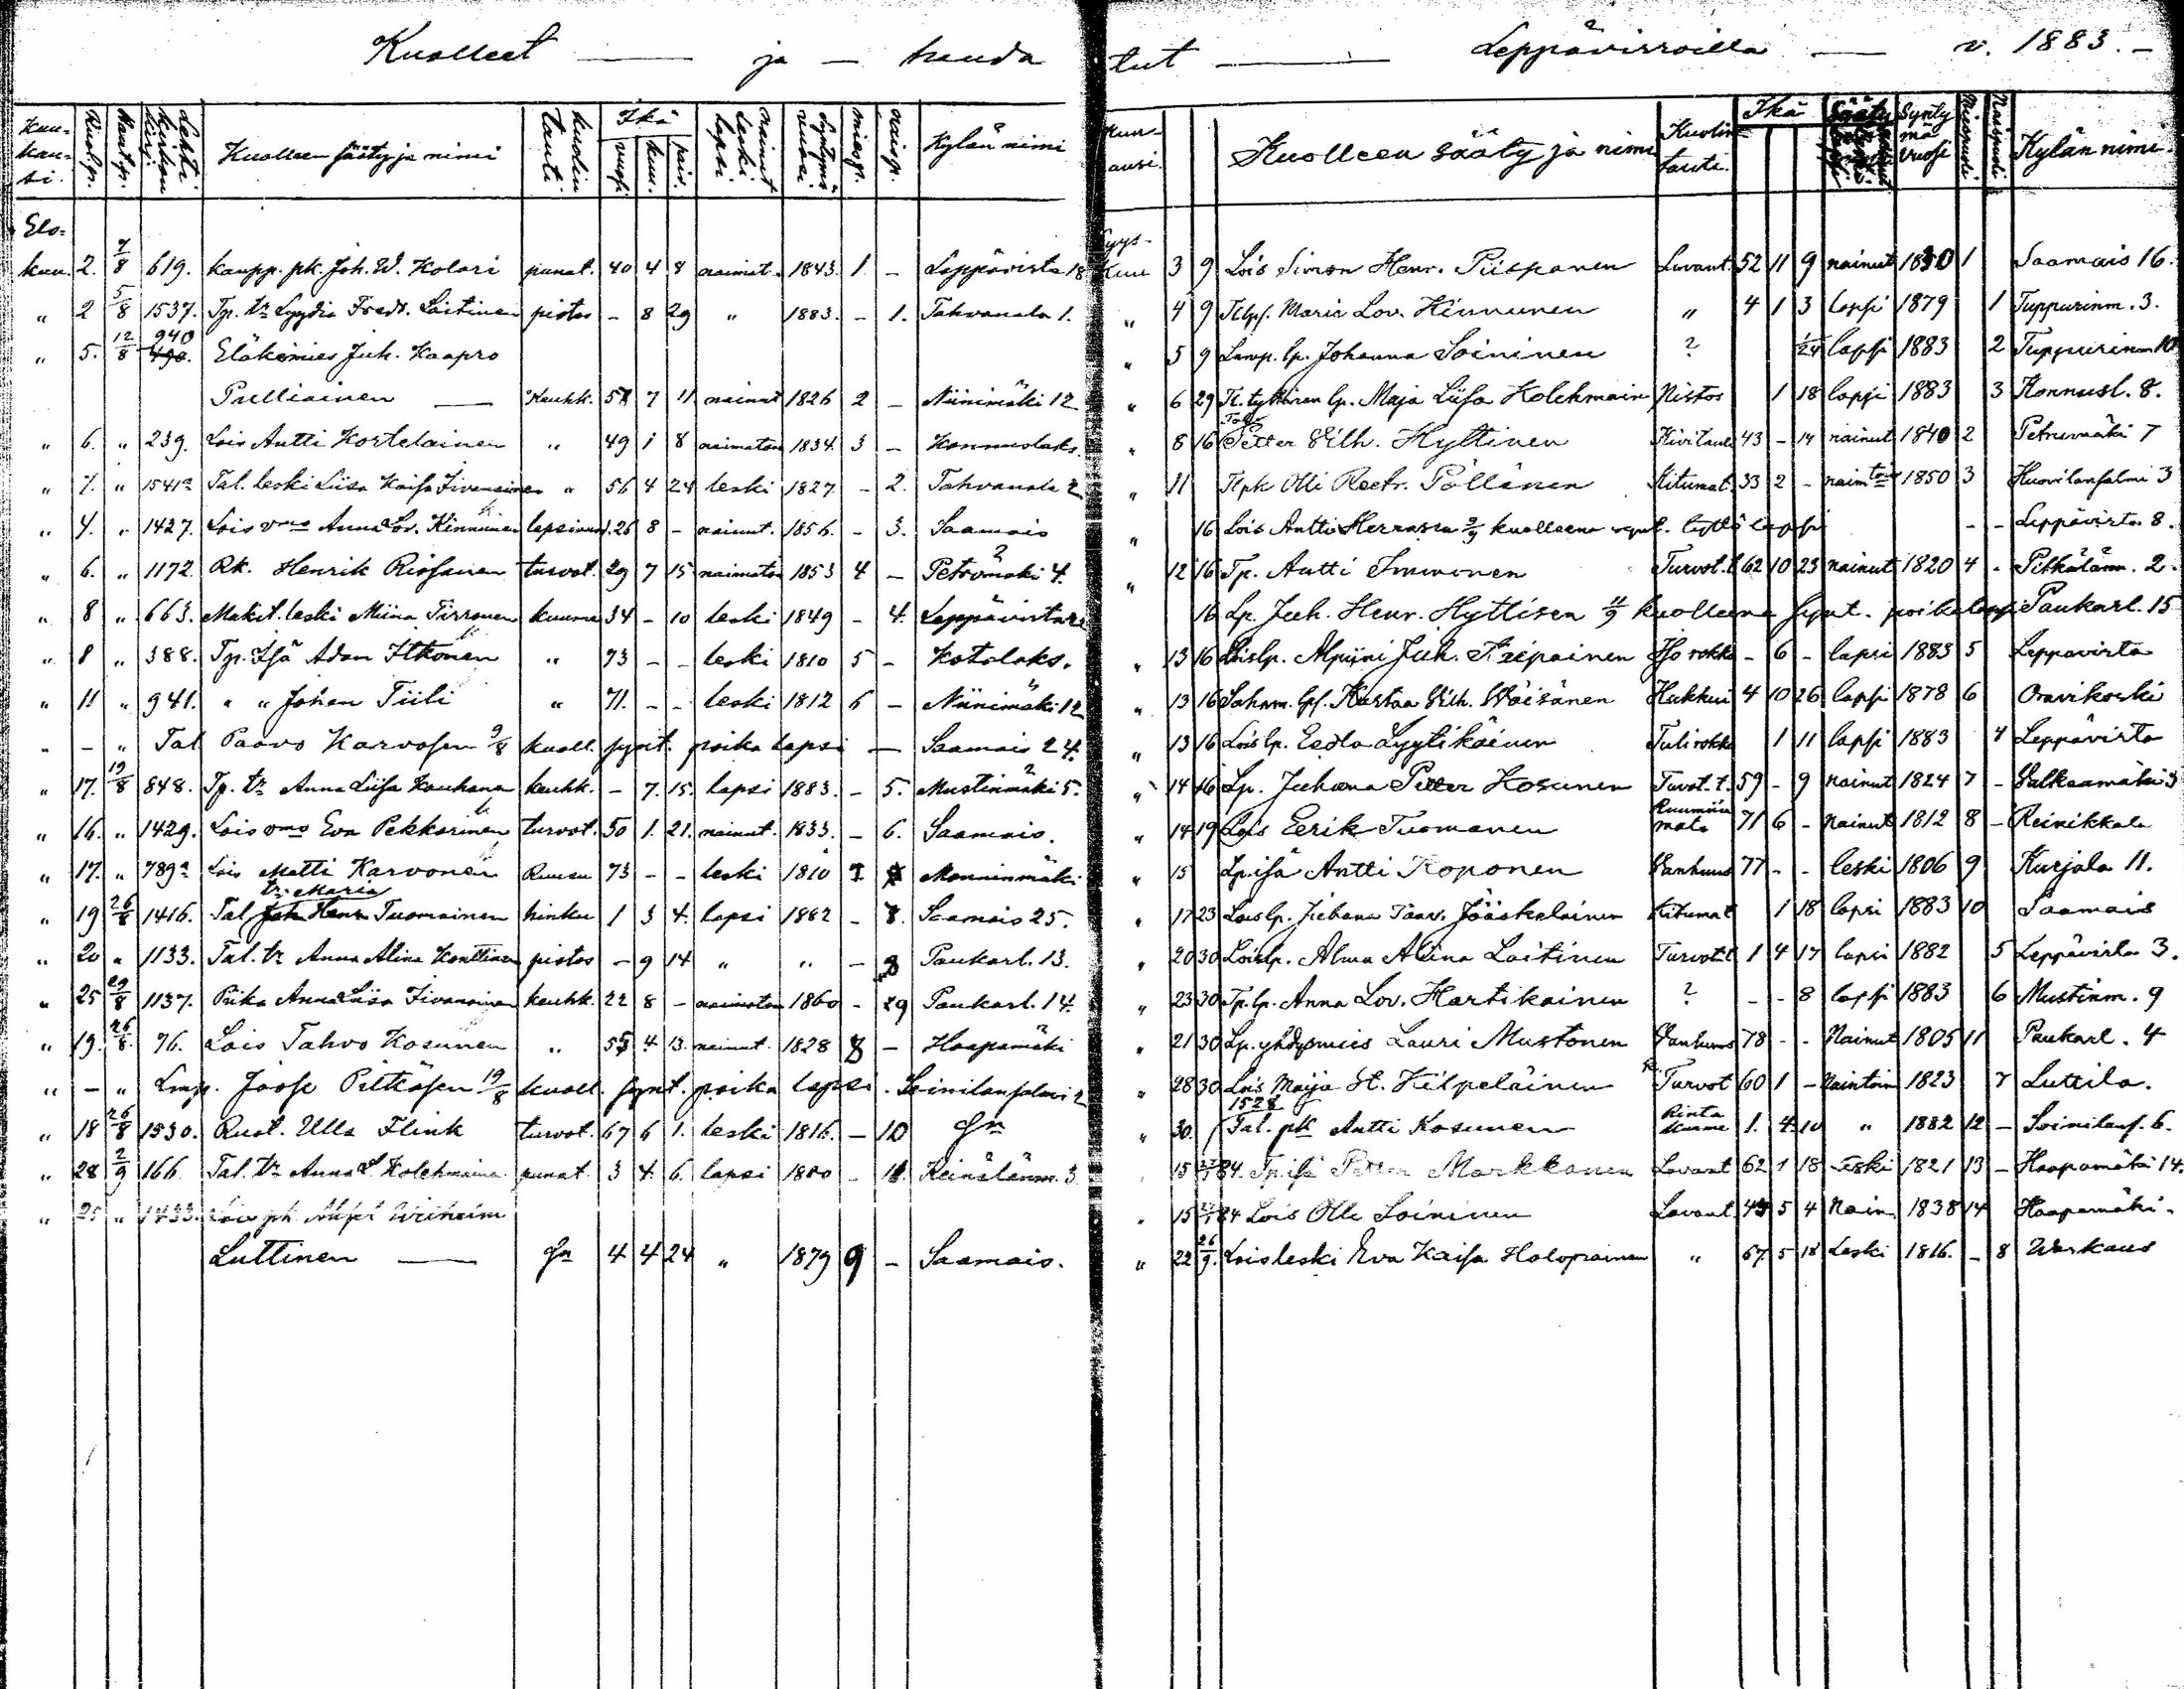 Kuolleet — ja — hauda tut — Leppävirroilla — v. 1883. —
Kuu- kau- si. Kuol.p. Haut.p. Lehti kirkon kirj. Kuolleen sääty ja nimi kuolin tauti Ikä vuosi kuu. päiv. nainut leski lapsi. Syntymä vuosi. miesp. naisp. Kylän nimi
Elo-
kuu. 2. 7/8 619. kaupp. pk. Joh. W. Kolari punat. 40 4 8 naimat. 1843. 1. - Leppävirta 18
" 2 5/8 1537. Tp. tr Lyydia Fredr. Laitinen pistos - 8 29 " 1883. - 1. Tahvanala 1.
" 5. 12/8 940 Eläkemies Juh. Kaapro
Pulliainen — Keuhk. 57 7 11 nainut 1826 2 - Niinimäki 12
" 6. " 239. Lois Antti Kortelainen " 49 1 8 naimaton 1834. 3 - Konnuslaks.
" 7. " 1541a Tal. leski Liisa Kaisa Iivanainen " 56 4 24 leski 1827. - 2. Tahvanala 2
" 4. " 1427. Lois vmo Anna Lov. Kinnunen lapsivuod. 26 8 - nainut. 1856. - 3. Saamais
" 6. " 1172. Rk. Henrik Riosanen turvot. 29 7 15 naimaton 1853 4 - Petromäki 4.
" 8 " 663. Mäkit. leski Miina Tirronen kuume 34 - 10 leski 1849 - 4. Leppävirta
" 8 " 388. Tp. Isä Adam Itkonen " 73 - - leski 1810 5 - Kotalaks.
" 11 " 941. " " Johan Tiili " 71. - - leski 1812 6 - Niinimäki 12
" - " Tal Paavo Karvosen 9/8 kuoll. synt. poika lapsi — Saamais 24.
" 17. 19/8 848. Tp. tr Anna Liisa Kauhanen keuhk. - 7. 15. lapsi 1883. - 5. Mustinmäki 5.
" 16. " 1429. Lois vmo Eva Pekkarinen turvot. 50 1. 21. nainut. 1833. - 6. Saamais.
" 17. " 789a Lois Matti Karvonen 73 - - leski 1810 Monninmäki
tr. Maria
" 19 26/8 1416. Tal Joh Henr Tuomainen hinku 1 3 4. lapsi 1882 - Saamais 25.
" 20 " 1133. Tal. tr Anna Alina Konttinen pistos - 9 14 " " - 8 Paukarl. 13.
" 25 29/8 1137. Piika Anna Liisa Iivanainen keuhk. 22 8 - naimaton 1860 - 9 Paukarl. 14.
" 19. 26/8. 76. Lois Tahvo Kosunen " 55 4. 13. nainut. 1828 8 - Haapamäki
" - " Lmp. Joose Pitkäsen 19/8 kuoll. synt. poika lapsi. Soinilansalmi 2
" 18 26/8 1530. Ruot. Ulla Flink turvot. 67 6 1. leski 1816. - 10
" 28 2/9 166. Tal. tr Anna L. Kolehmainen punat. 3 4. 6. lapsi 1880 - 11. Reinälänm. 3
" 25 " 1433. Lois pk. Alfret Wilheim
Luttinen — 4 4 24 " 1879 9 - Saamais.
Kuu- kausi. Kuolleen sääty ja nimi Kuolin- tauti. Ikä Sääty Synty mä vuosi Miespuoli Naispuoli Kylän nimi
Syys-
kuu 3 9 Lois Simon Henr. Piispanen Luvant. 52 11 9 nainut 1830 1 Saamais 16.
" 4 9 Tilps. Maria Lov. Kinnunen " 4 1 3 lapsi 1879 1 Tuppurinm. 3.
" 5 9 Lamp. lp. Johanna Soininen ? 1/24 lapsi 1883 2 Tuppurinm 10
" 6 29 It. tyttären lp. Maja Liisa Kolehmain Pistos 1 18 lapsi 1883 3 Konnusl. 8.
" 8 16 Petter Vilh. Hyttinen Kivitaut 43 - 14 nainut 1840 2 Petrumäki 7
" 11 Tlpk Olli Reetr. Pöllänen Kitumat. 33 2 - naimton 1850 3 Huovilansalmi 3
" 16 Lois Antti Herrasen 9/9 kuolleena synt. tyttö lapsi - - Leppävirta 8.
" 12 16 Tp. Antti Immonen Turvot.t 62 10 23 nainut 1820 4 - Pitkälänn. 2.
16 Lp. Juh. Henr. Hyttisen 11/9 kuolleena synt. poikalapsi Paukarl. 15
" 13 16 Loislp. Alpiini Juh. Räipainen Iso rokko - 6 - lapsi 1883 5 Leppavirta
" 13 16 Saham. lps. Kustaa Vilh. Wäisänen Hukkui 4 10 26 lapsi 1878 6 Oravikoski
" 13 16 Loislp. Eedla Lyytikäinen Tulirokko 1 11 lapsi 1883 4 Leppävirta
" 14 16 Lp. Juhana Petter Kosunen Turvot.t. 59 - 9 nainut 1824 7 - Valkeamäki 3
" 14 19 Lois Eerik Tuomanen Ruumiin mato 71 6 - Nainut 1812 8 - Reinikkala
" 15 Lp.isä Antti Koponen Vanhuus 77 - - leski 1806 9 Kurjala 11.
" 17 23 Loislp. Juhana Taav. Jääskelainen Kitumat 1 18 lapsi 1883 10 Saamais
" 20 30 Loislp. Alma Alina Laitinen Turvott 1 4 17 lapsi 1882 5 Leppävirta 3.
" 23 30 Tp. lp. Anna Lov. Hartikainen ? - - 8 lapsi 1883 6 Mustinm. 9
" 21 30 Lp. yhdysmies Lauri Mustonen Vanhuus 78 - - Nainut 1805 11 Paukarl. 4
" 28 30 Lois Maija St. Kilpeläinen Turvot 60 1 - Naimton 1823 7 Luttila.
1528
" 30. Tal. pk Antti Kosunen Rinta kuume 1. 4. 10 " 1882 12 - Soinilans. 6.
" 15 84. Tp.isä Petter Markkanen Lavant 62 1 18 leski 1821 13 - Haapamäki 14.
" 15 84 Lois Olli Soininen Lavant. 45 5 4 Nain. 1838 14 Haapamäki.
" 22 26/9. Loisleski Eva Kaisa Holopainen " 67. 5 18 Leski 1816. - 8 Warkaus